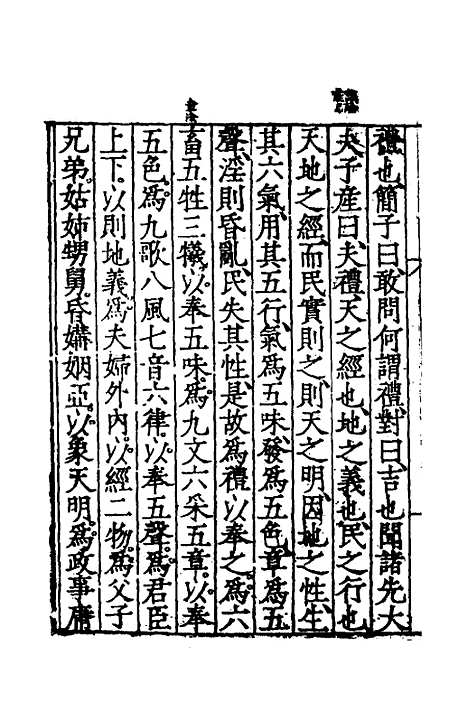 禮也簡子曰敢問何謂禮對曰吉也聞諸先大
夫子產曰夫禮天之經也地之義也民之行也
天地之經而民實則之則天之明因地之性生
其六氣用其五行氣爲五味發爲五色章爲五
聲淫則昏亂民失其性是故爲禮以奉之爲六
畜五牲三犧以奉五味爲九文六采五章以奉
五色爲九歌八風七音六律以奉五聲爲君臣
上下以則地義爲夫婦外內以經二物爲父子
兄弟姑姊甥舅昏媾姻亞以象天明爲政事庸